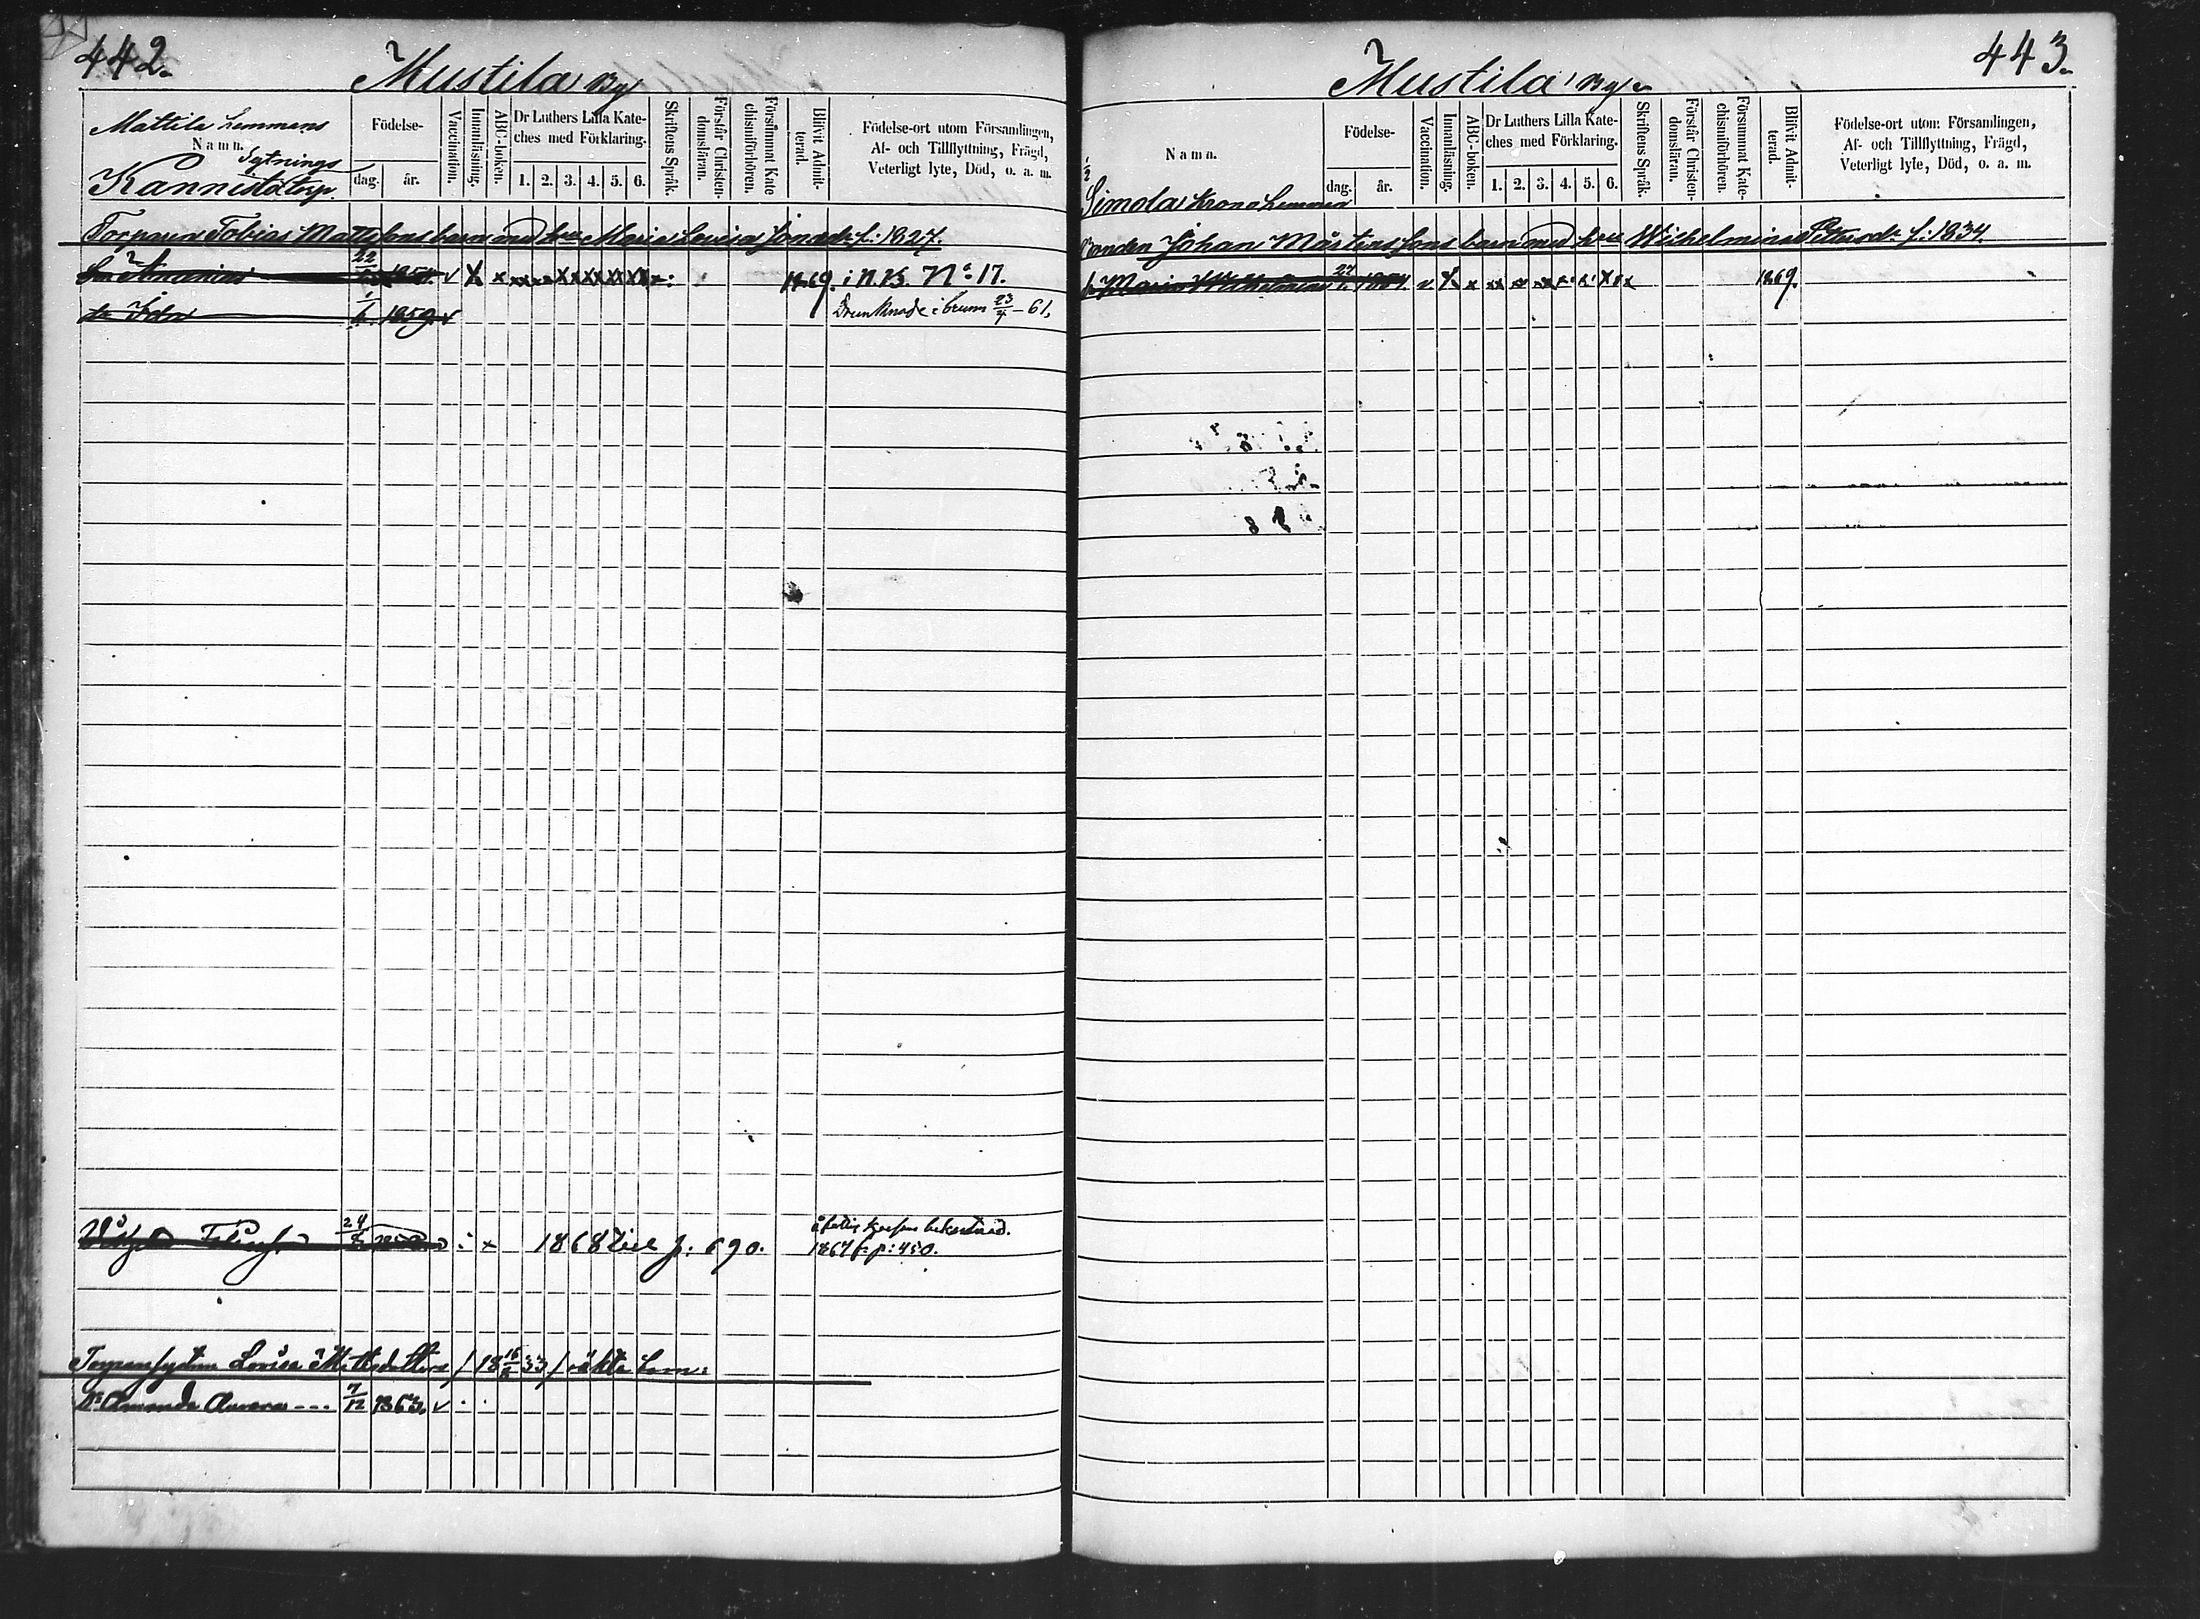 442.
Mustila By
Mattila hemmans
Namn.
Sytnings
Kannisto torp.
Födelse-
dag. år.
Vaccination.
Innanläsning.
ABC-boken.
Dr Luthers Lilla Kate-
ches med Förklaring.
1. 2. 3. 4. 5. 6.
Skriftens Språk.
Förstår Christen-
domsläran.
Försummat Kate
chismiförhören.
Blifvit Admit-
terad.
Födelse-ort utom Församlingen,
Af- och Tillflyttning, Frägd,
Veterligt lyte, Död, o. a. m.
Torparen Tobias Mattsfons barn med hru Maria Lovisa Jonaedr f: 1827.
Sn Ananias 22 v x x 1869. i N.B. No 17.
dr Ida 1859 v Drunknade i brunn 23/7 – 61.
24 1868 till p: 690.
1867 fr p: 450.
Lovisa Mattsdotters /18 16 33/ oäkta barn:
Dr Amanda Aurora --- 7/12 1863. v
443.
Mustila By
Namn.
1/2
Simola Krono hemman
Födelse-
dag. år.
Vaccination.
Innanläsning.
ABC-boken.
Dr Luthers Lilla Kate-
ches med Förklaring.
1. 2. 3. 4. 5. 6.
Skriftens Språk.
Förstår Christen-
domsläran.
Försummat Kate-
chismiförhören.
Blifvit Admit-
terad.
Födelse-ort utom Församlingen,
Af- och Tillflyttning, Frägd,
Veterligt lyte, Död, o. a. m.
Bonden Johan Mårtensfons barn med hru Wilhelmina Petersdr f: 1834.
dr Maria Wilhelmina 24 1854. v x x 1869.